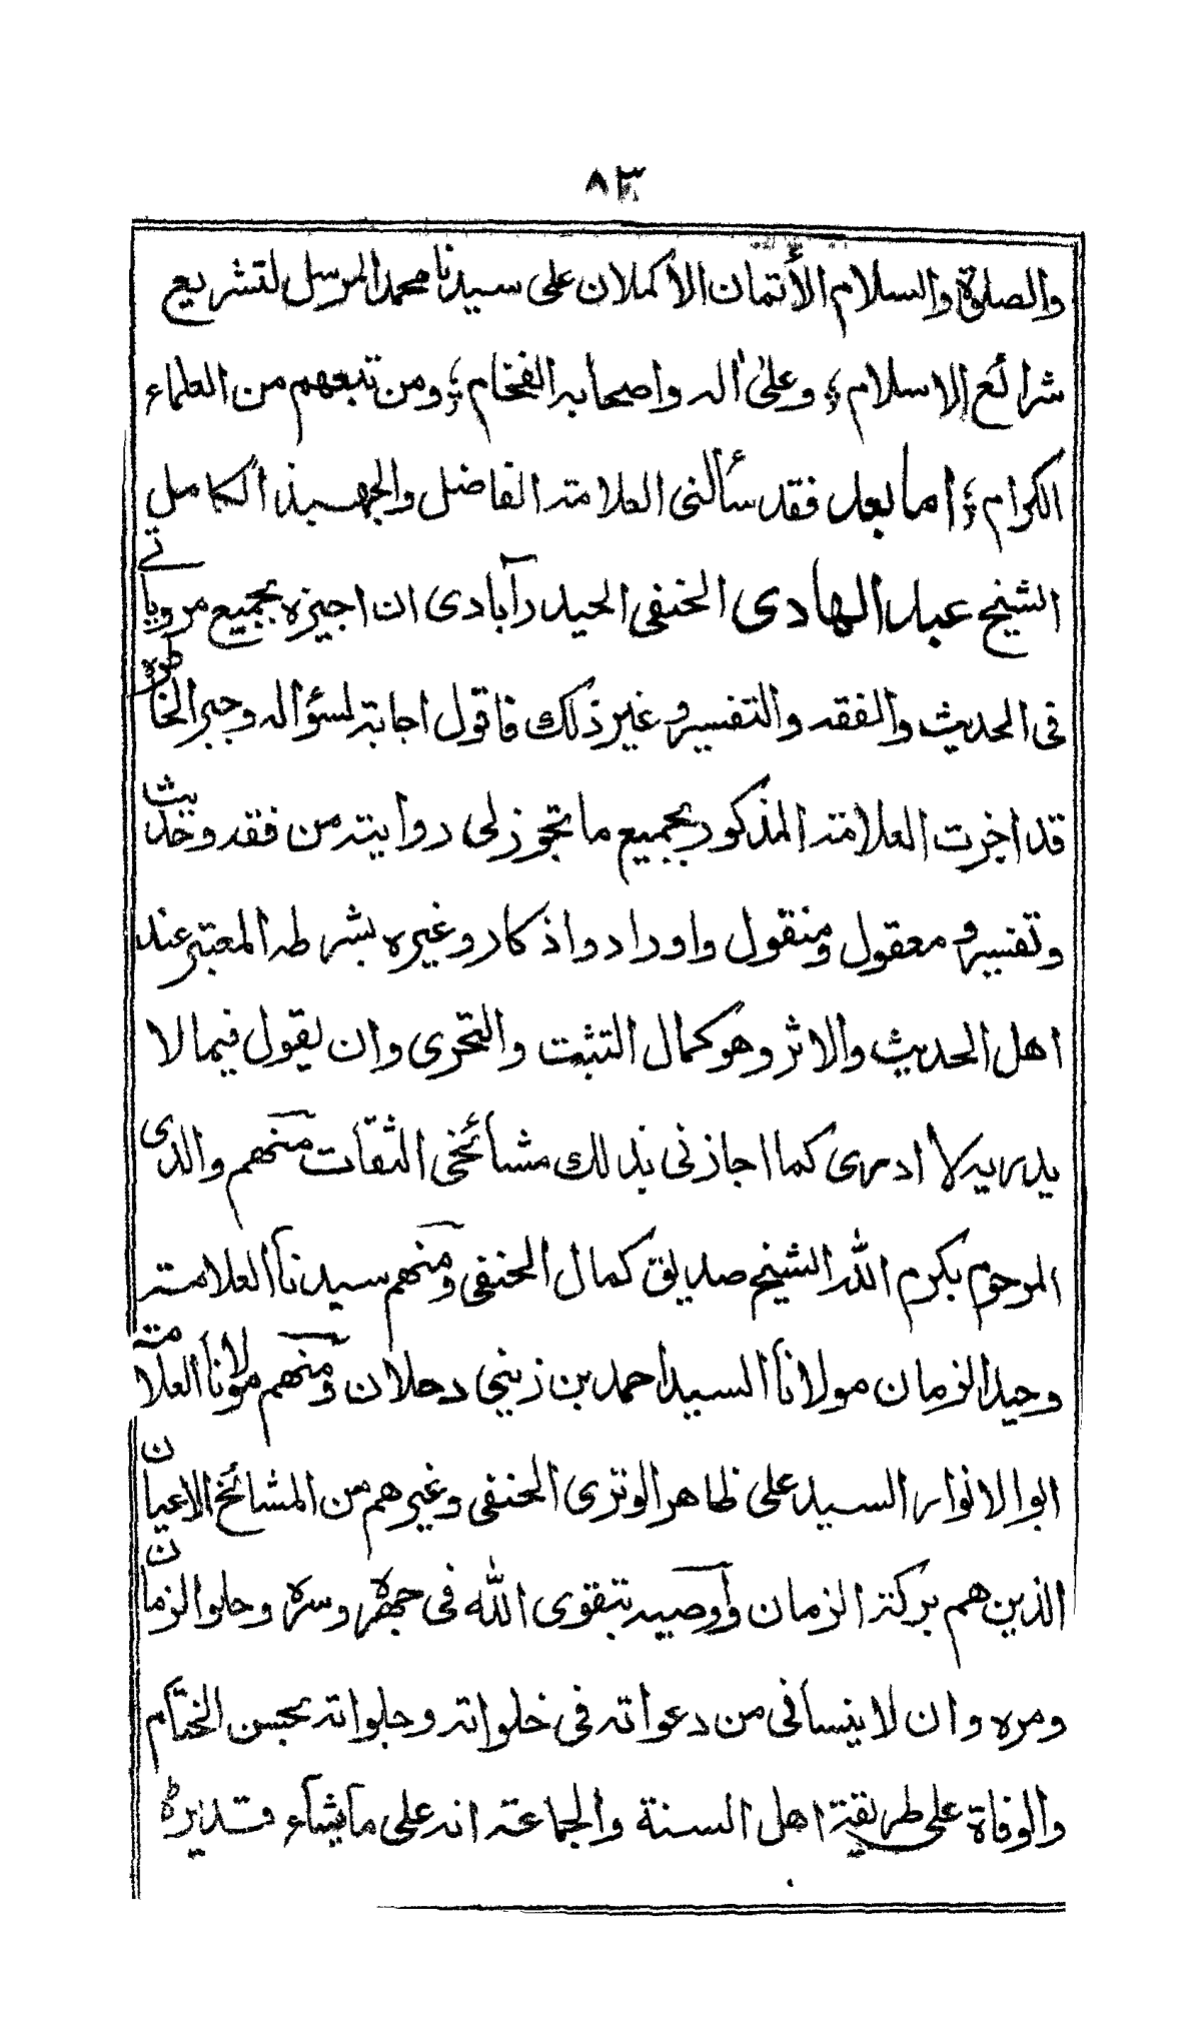 ٨٣
والصلوة والسلام الأتمان الأكملان على سيدنا محمد المرسل لتشريع
شرائع الاسلام؛ وعلىٰ اٰله واصحابه الفخام؛ ومن تبعهم من العلماء
الكرام؛ اما بعد فقد سألنى العلامة الفاضل والجهبذ الكامل
الشيخ عبد الهادى الحنفى الحيدرآبادى ان اجيزه بجميع مروياتے
فى الحديث والفقه والتفسير وغير ذلك فاقول اجابة لسؤاله وجبر الخاطره
قد اجزت العلامة المذكور بجميع ما تجوز لى روايته من فقه وحديث
وتفسير ومعقول ومنقول واوراد واذكار وغيره بشرطه المعتبر عند
اهل الحديث والاثر وهو كمال التثبت والتحرى وان يقول فيما لا
يدريه لا ادرى كما اجازنى بذلك مشائخى الثقات منهم والدى
المرحوم بكرم الله الشيخ صديق كمال الحنفى ومنهم سيدنا العلامة
وحيد الزمان مولانا السيد احمد بن زينى دحلان ومنهم مولانا العلامة
ابو الانوار السيد على ظاهر الوترى الحنفى وغيرهم من المشائخ الاعيان
الذين هم بركة الزمان وأوصيه بتقوى الله فى جهره وسره وحلو الزمان
ومره وان لا ينسانى من دعواته فى خلواته وجلواته بحسن الختام
والوفاة على طريقة اهل السنة والجماعة انه على ما يشاء قدير